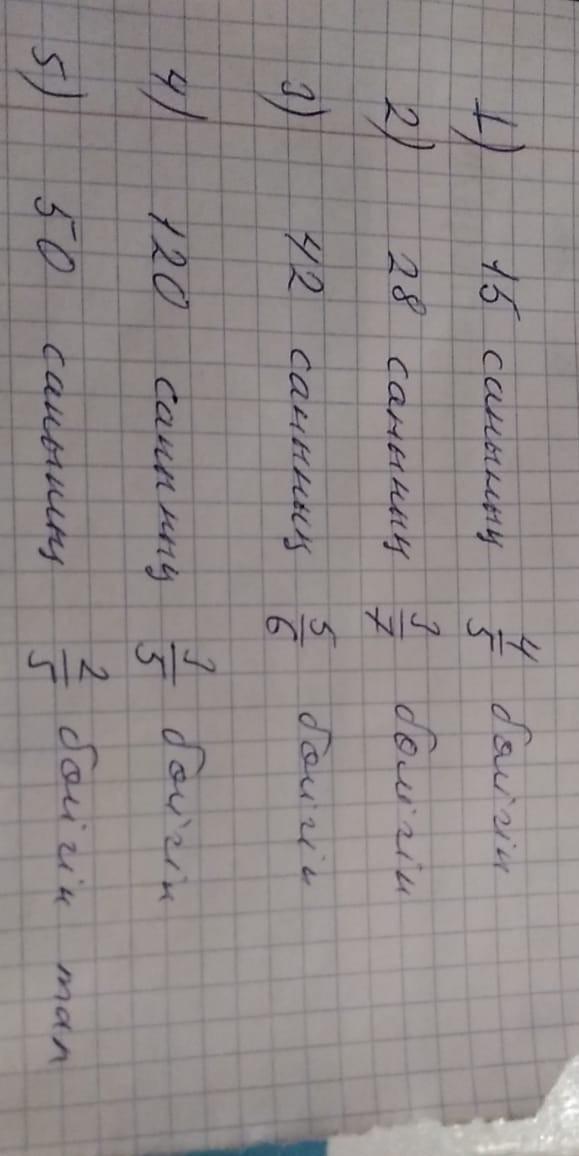 1) 15 санының 4/5 бөлігін
2) 28 санының 3/7 бөлігін
3) 42 санының 5/6 бөлігін
4) 120 санның 3/5 бөлігін
5) 50 санының 2/5 бөлігін тап